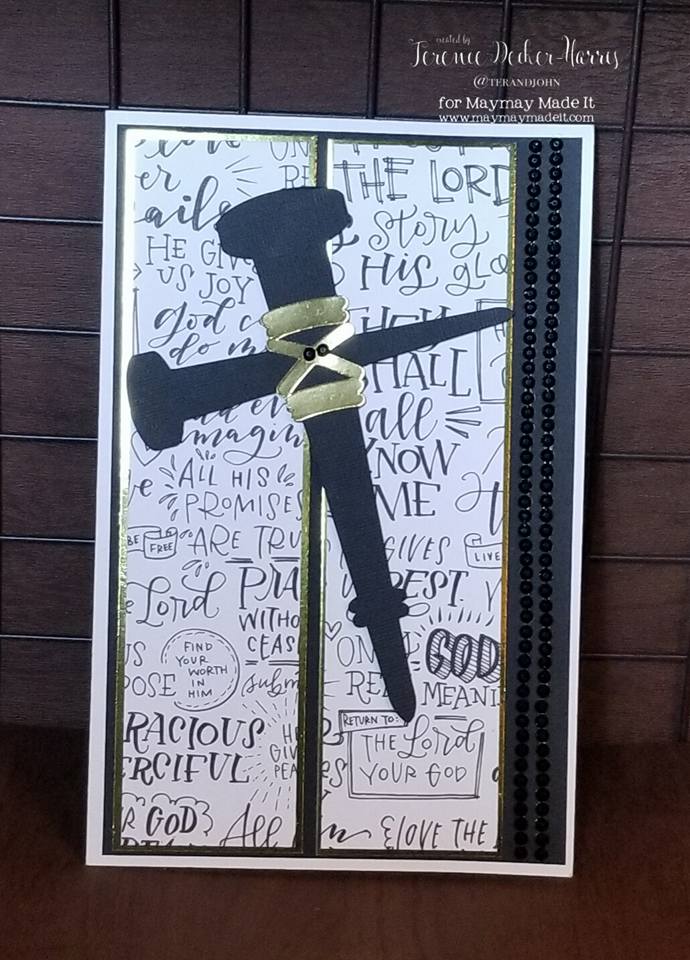 created by
Terence Decker-Harris
@TERANDJOHN
for Maymay Made It
www.maymaymadeit.com
THE LORD
Story
HE
US JOY
His
god
do
THEY
SHALL
all
KNOW
ME
ALL HIS
PROMISES
ARE TRU
BE
FREE
GIVES
LIVE
REST
Lord
PRA
WITHO
CEAS
FIND
YOUR
WORTH
IN
HIM
ONLY
GOD
MEANI
RACIOUS
ERCIFUL
HE
GIV
PEA
RETURN TO:
THE Lord
YOUR GOD
GOD
All
& LOVE THE